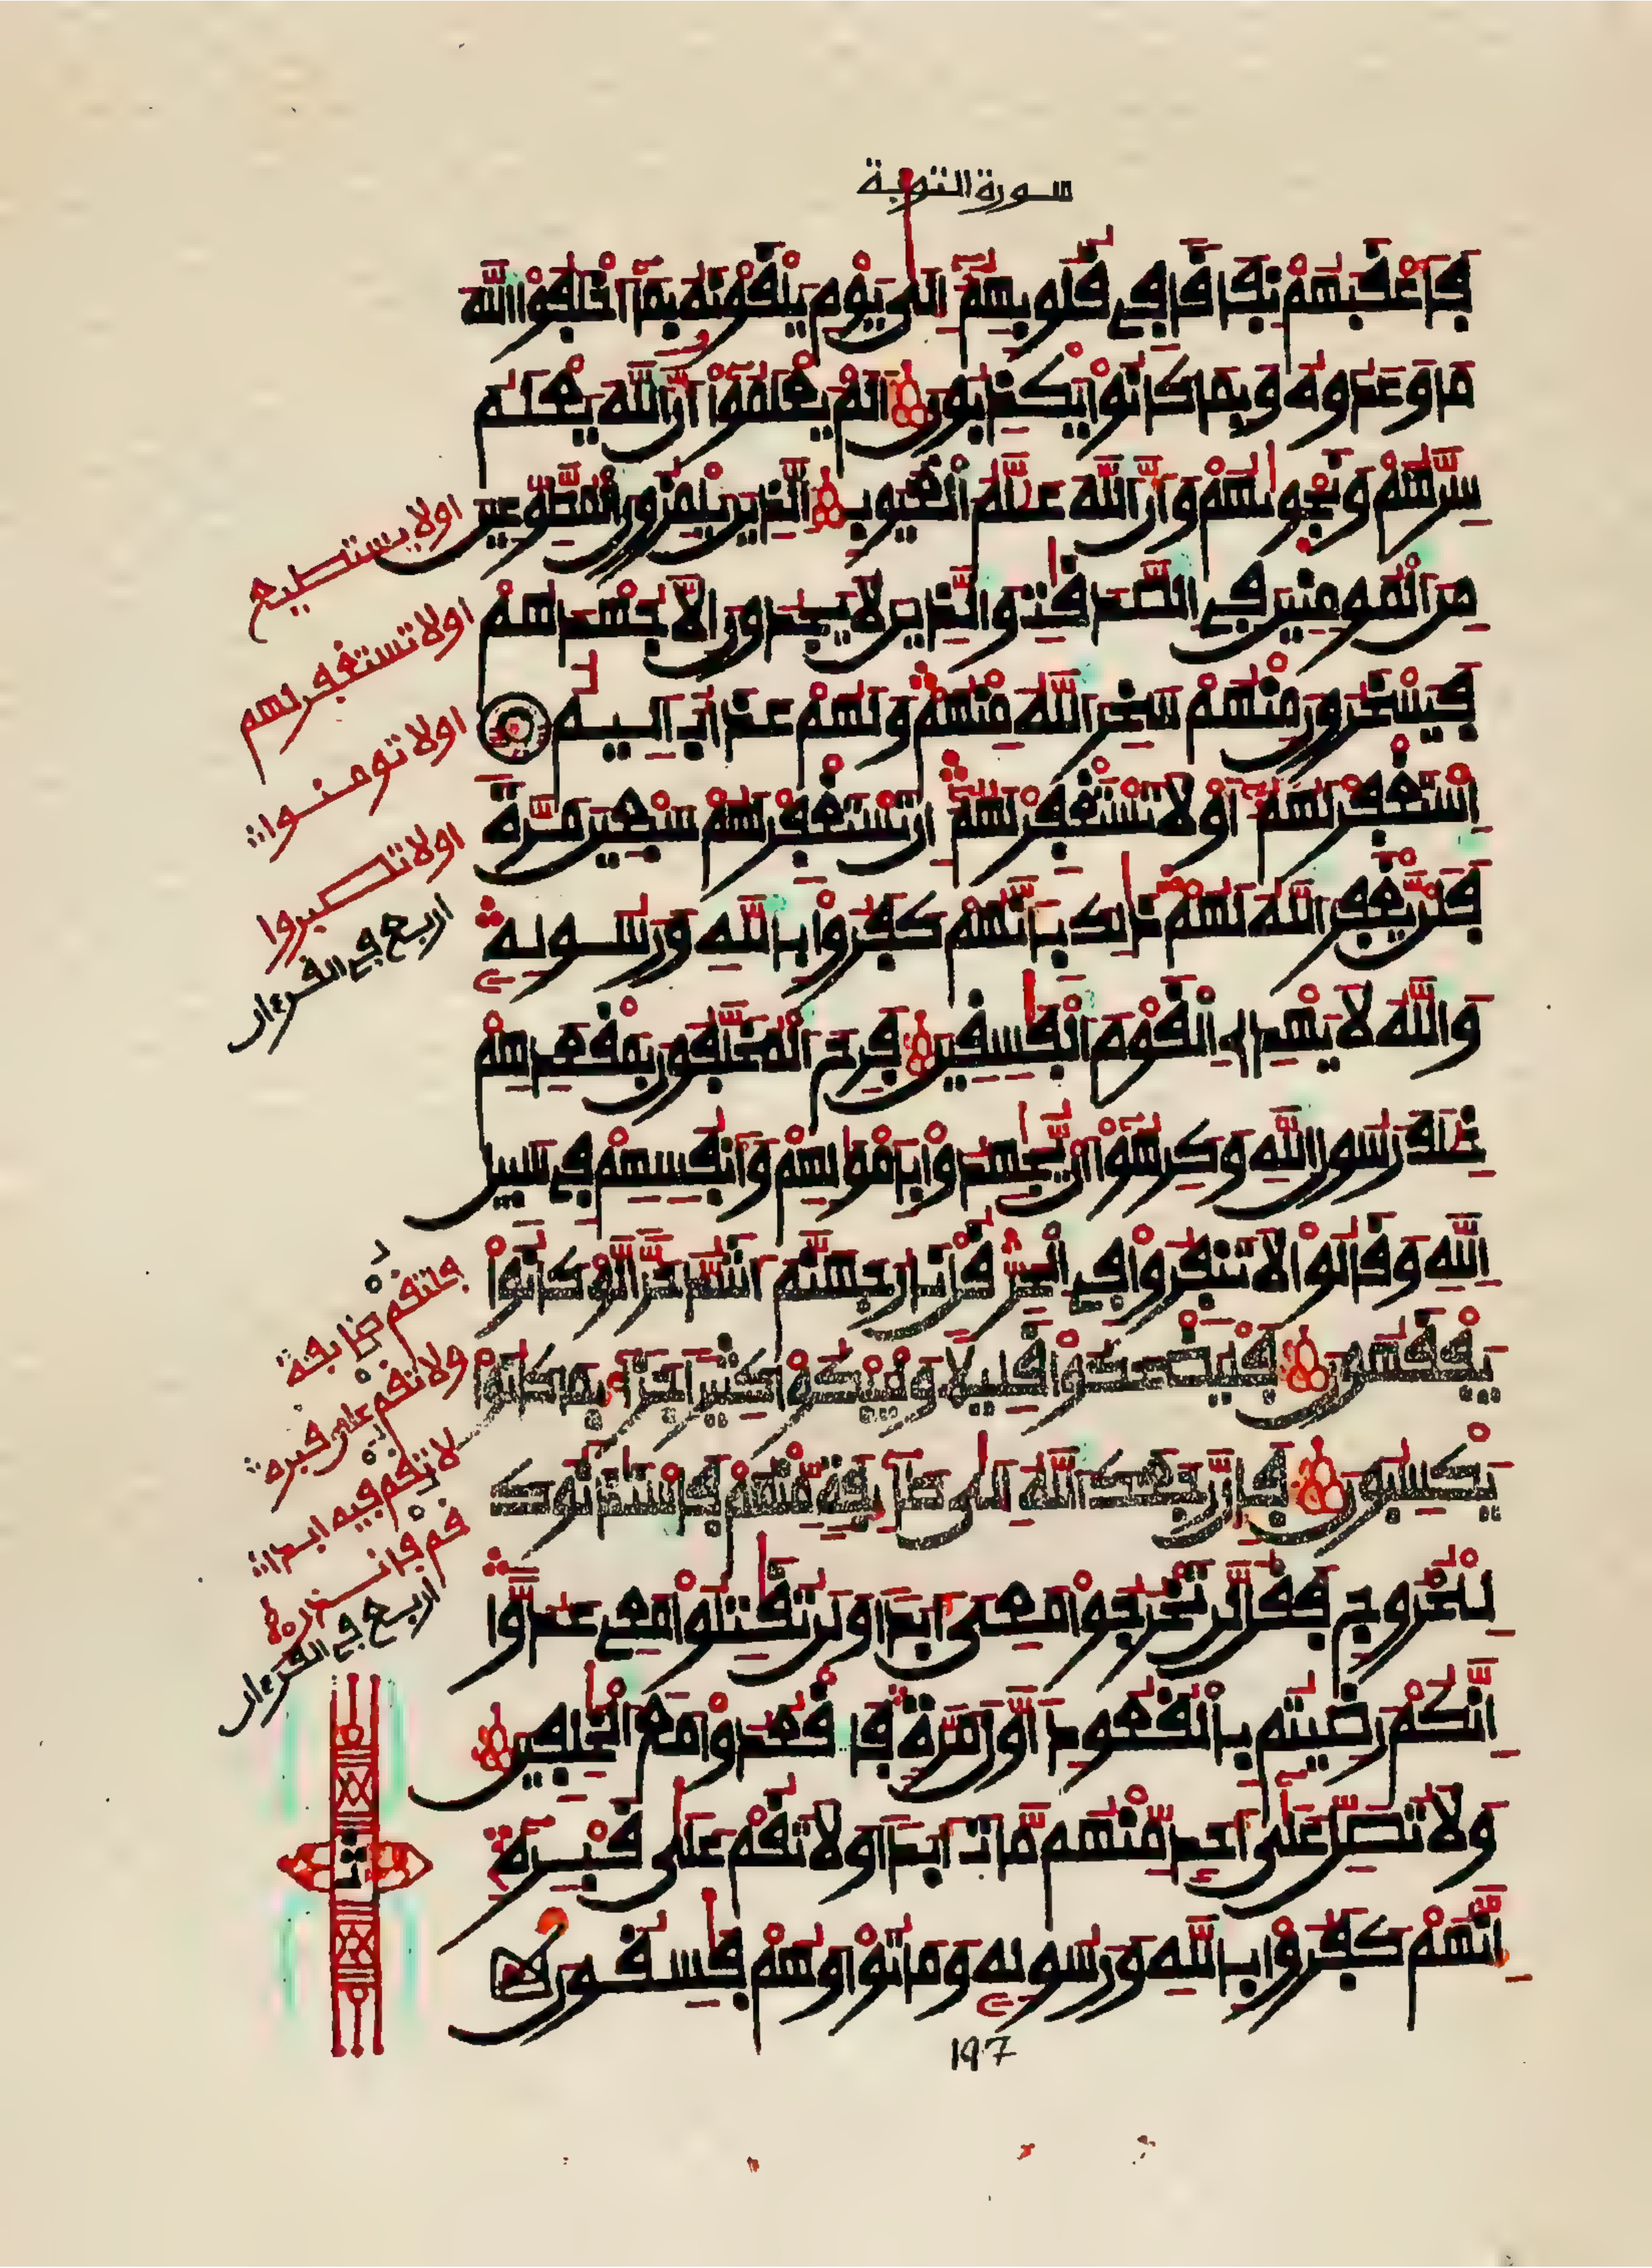 سورة التوبة
فأعقبهم نفاقا في قلوبهم إلى يوم يلقونه بما أخلفوا الله
ما وعدوه وبما كانوا يكذبون ألم يعلموا أن الله يعلم
سرهم ونجويهم وأن الله علم الغيوب الذين يلمزون المطوعين
من المومنين في الصدقت والذين لا يجدون إلا جهدهم
فيسخرون منهم سخر الله منهم ولهم عذاب اليم
استغفر لهم أو لا تستغفر لهم ان تستغفر لهم سبعين مرة
فلن يغفر الله لهم ذلك بأنهم كفروا بالله ورسوله
والله لا يهدي القوم الفسقين فرح المخلفون بمقعدهم
خلف رسول الله وكرهوا أن يجهدوا بأمولهم وأنفسهم في سبيل
الله وقالوا لا تنفروا في الحر قل نار جهنم اشد حرا لو كانوا
يفقهون فليضحكوا قليلا وليبكوا كثيرا جزاء بما كانوا
يكسبون فإن رجعك الله إلى طايفة منهم فاستذنوك
للخروج فقل لن تخرجوا معي ابدا ولن تقتلوا معي عدوا
انكم رضيتم بالقعود أول مرة فاقعدوا مع الخلفين
ولا تصل على أحد منهم مات ابدا ولا تقم على قبره
انهم كفروا بالله ورسوله وماتوا وهم فسقون
اولا يستطيع
اولا تستغفر لهم
اولا تومنوا
اولا تصبروا
اربع في القرءان
فلتقم طايفة
ولا تقم على قبره
لا تقم فيه ابدا
قم فانذر
اربع في القرءان
197